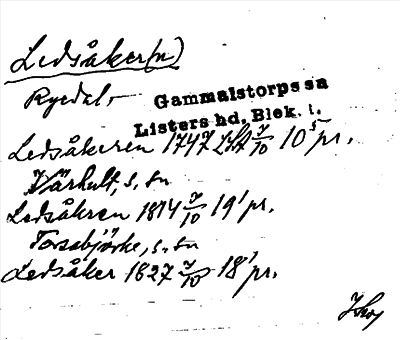 Ledsåker(n)
Ryedal,
Gammalstorps sn
Listers hd, Blek. l.
Ledsåkeren 1747 7/10 10 5 pr.
Värhult, s. sn
Ledsåkren 1814 7/10 19' pr.
Torsabjörke, s. sn
Ledsåker 1827 7/10 18' pr.